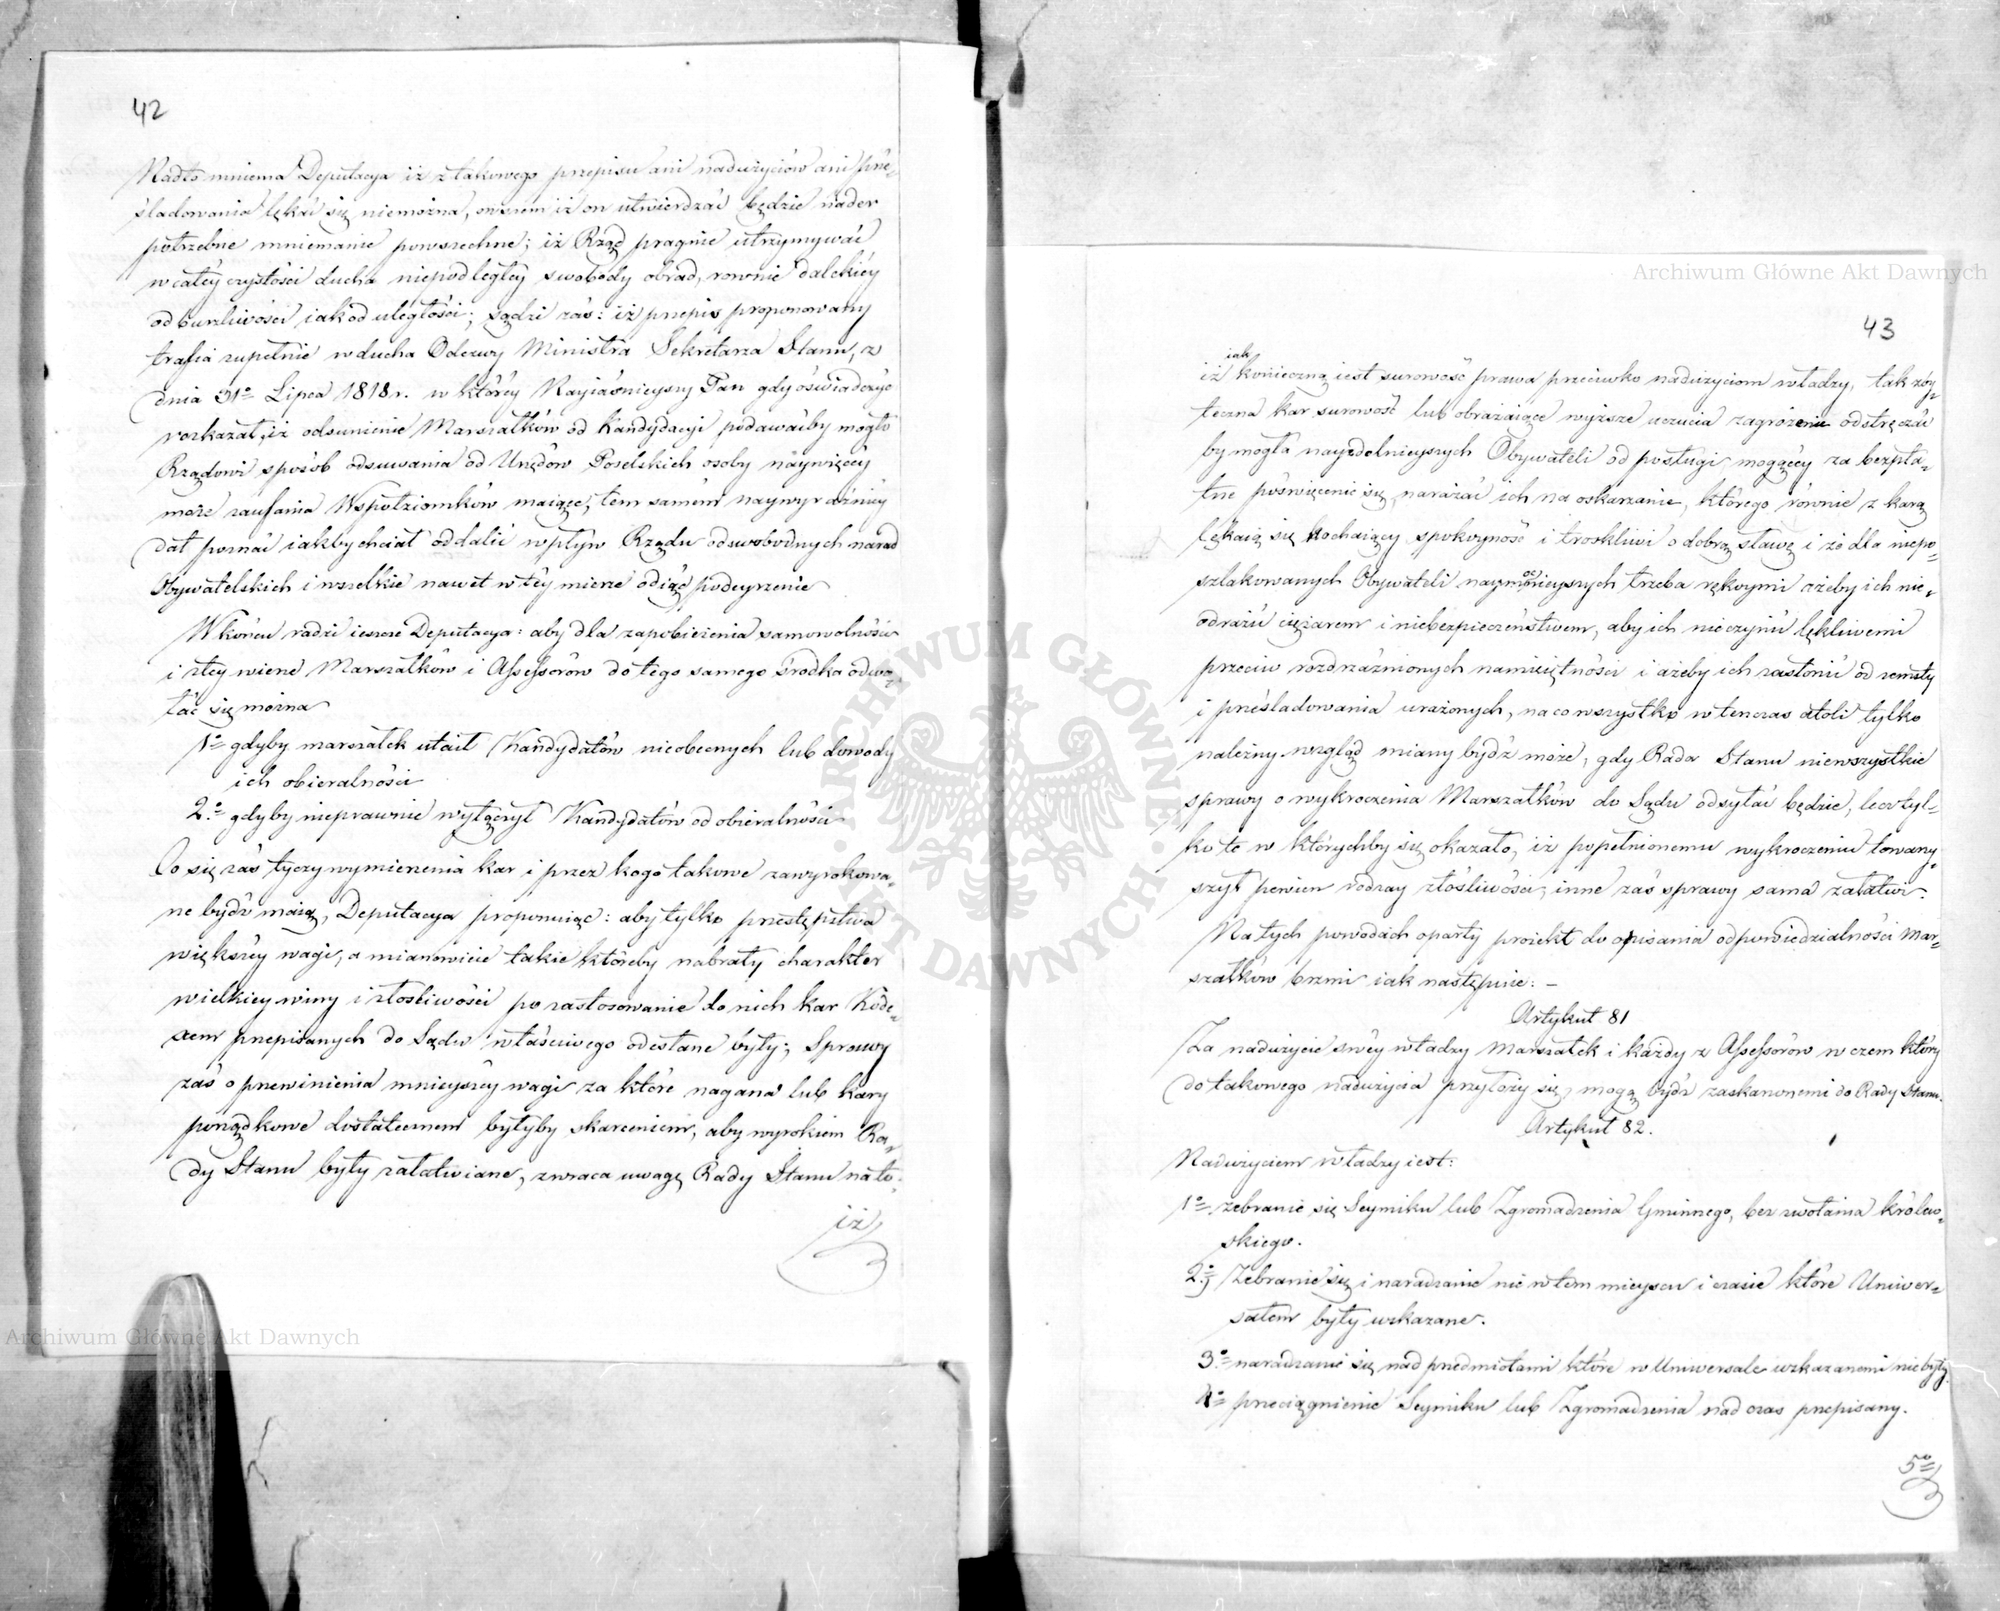 42
Nadto mniema Deputacya iż z takowego przepisu ani nadużyciów ani prze-
śladowania lękać się niemożna, owszem iż on utwierdzać będzie nader
potrzebne mniemanie powszechne; iż Rząd pragnie utrzymywać
w całéy czystości ducha niepodległéy swobody obrad, rownie dalekiéy
od burzliwości iak od uległości; sądzi zaś: iż przepis proponowany
trafia zupełnie w ducha Odezwy Ministra Sekretarza Stanu, z
dnia 31o Lipca 1818 r. w któréy Nayiaśnieyszy Pan gdy oświadczyć
rozkazał, iż odsunienie Marszałków od Kandydacyi podawaćby mogło
Rządowi sposób odsuwania od Urzędów Poselskich osoby naywięcéy
może zaufania Wspołziomków maiące, tem samém naywyraźniéy
dał poznać iakby chciał oddalić wpływ Rządu od swobodnych narad
Obywatelskich i wszelkie nawet w téy mierze odiąć podeyrzenie
W końcu radzi ieszcze Deputacya: aby dla zapobieżenia samowolności
i złéy wierze Marszałków i Assessorów do tego samego środka odwo-
łać się można
1o gdyby marszałek utaił Kandydatów nieobecnych lub dowody
ich obieralności
2o gdyby nieprawnie wyłączył Kandydatów od obieralności
Co się zaś tyczy wymienienia kar i przez kogo takowe zawyrokowa-
ne bydź maią, Deputacya proponuiąc: aby tylko przestępstwa
większéy wagi, a mianowicie takie któreby nabrały charakter
wielkiey winy i złośliwości po zastosowanie do nich kar Kode-
xem przepisanych do Sądu właściwego odesłane były; Sprawy
zaś o przewinienia mnieyszéy wagi za które nagana lub kary
porządkowe dostatecznem byłyby skarceniem, aby wyrokiem Ra-
dy Stanu były załatwiane, zwraca uwagę Rady Stanu na to:
iż
43
iak
iż konieczną iest surowość prawa przeciwko nadużyciom władzy, tak zby-
teczna kar surowość lub obrażaiące wyższe uczucia zagrożenie odstręczać
by mogła nayzdolnieyszych Obywateli od posługi mogącéy za bezpła-
tne poświęcenie się narażać ich na oskarżanie, którego równie z karą
lękaią się kochaiący spokoyność i troskliwi o dobrą sławę i że dla niepo-
szlakowanych Obywateli naymocnieyszych trzeba rękoymi ażeby ich nie-
odrażić ciężarem i niebezpieczeństwem, aby ich nie czynić lękliwemi
przeciw rozdrażnionych namiętności i ażeby ich zasłonić od zemsty
i prześladowania urażonych, na co wszystko w ten czas atoli tylko
należny wzgląd miany bydź może, gdy Rada Stanu niewszystkie
sprawy o wykroczenia Marszałków do Sądu odsyłać będzie, lecz tyl-
ko te w którychby się okazało, iż popełnionemu wykroczeniu towarzy-
szył pewien rodzay złośliwości, inne zaś sprawy sama załatwi.
Na tych powodach oparty proiekt do opisania odpowiedzialności Mar-
szałków brzmi iak następuie: –
Artykuł 81
Za nadużycie swéy władzy Marszałek i każdy z Assessorów w czem który
do takowego nadużycia przyłoży się, mogą bydź zaskarżonemi do Rady Stanu.
Artykuł 82.
Nadużyciem władzy iest:
1o zebranie się Seymiku lub Zgromadzenia Gminnego, bez zwołania królew-
skiego.
2o Zebranie się i naradzanie nie w tem mieyscu i czasie które Uniwer-
sałem były wskazane.
3o naradzanie się nad przedmiotami które w Uniwersale wskazanemi nie były
4o przeciągnienie Seymiku lub Zgromadzenia nad czas przepisany.
5o
Archiwum Główne Akt Dawnych
Archiwum Główne Akt Dawnych
ARCHIWUM GŁÓWNE AKT DAWNYCH